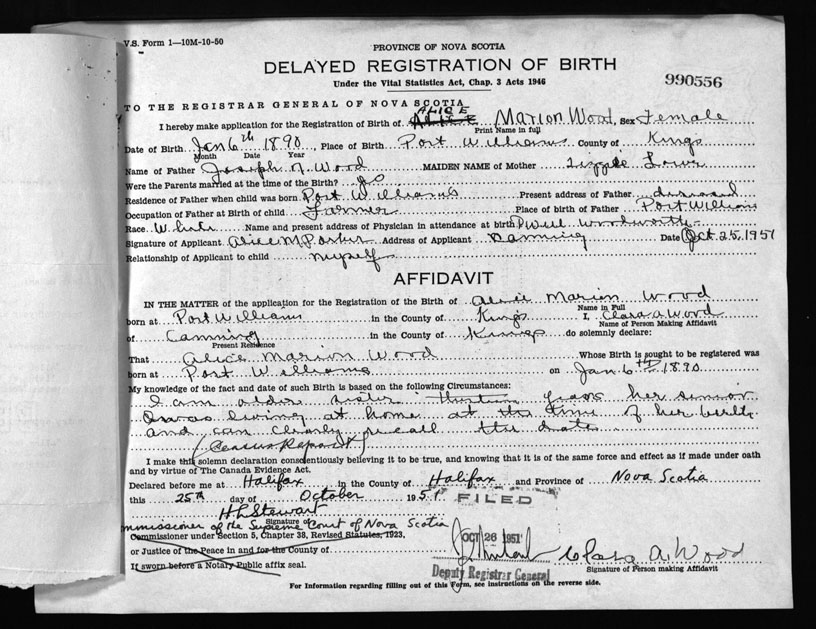 V.S. Form 1—10M-10-50
PROVINCE OF NOVA SCOTIA
DELAYED REGISTRATION OF BIRTH
Under the Vital Statistics Act, Chap. 3 Acts 1946
990556
TO THE REGISTRAR GENERAL OF NOVA SCOTIA
ALICE
I hereby make application for the Registration of Birth of Marion Wood, Sex Female
Print Name in full
Date of Birth Jan 6th 1890, Place of Birth Port Williams County of Kings
Month Date Year
Name of Father Joseph N. Wood MAIDEN NAME of Mother Lizzie Lowe
Were the Parents married at the time of the Birth?
Residence of Father when child was born Port Williams Present address of Father deceased
Occupation of Father at Birth of child Farmer Place of birth of Father Port Williams
Race White Name and present address of Physician in attendance at birth Woodworth
Signature of Applicant Alice M. Porter Address of Applicant Canning Date Oct. 25, 1951
Relationship of Applicant to child myself
AFFIDAVIT
IN THE MATTER of the application for the Registration of the Birth of Alice Marion Wood
Name in Full
born at Port Williams in the County of Kings I, Clara A Wood
Name of Person Making Affidavit
of Canning in the County of Kings do solemnly declare:
Present Residence
That Alice Marion Wood Whose Birth is sought to be registered was
born at Port Williams on Jan 6th 1890
My knowledge of the fact and date of such Birth is based on the following Circumstances:
I am older sister thirteen years her senior
I was living at home at the time of her birth
and can clearly recall the date
(Census Report)
I make this solemn declaration conscientiously believing it to be true, and knowing that it is of the same force and effect as if made under oath
and by virtue of The Canada Evidence Act.
Declared before me at Halifax in the County of Halifax and Province of Nova Scotia
this 25th day of October 1951
FILED
H L Stewart
Signature of
Commissioner of the Supreme Court of Nova Scotia
Commissioner under Section 5, Chapter 38, Revised Statutes, 1923,
OCT 26 1951
or Justice of the Peace in and for the County of
Clara A. Wood
If sworn before a Notary Public affix seal.
Deputy Registrar General
Signature of Person making Affidavit
For Information regarding filling out of this Form, see instructions on the reverse side.